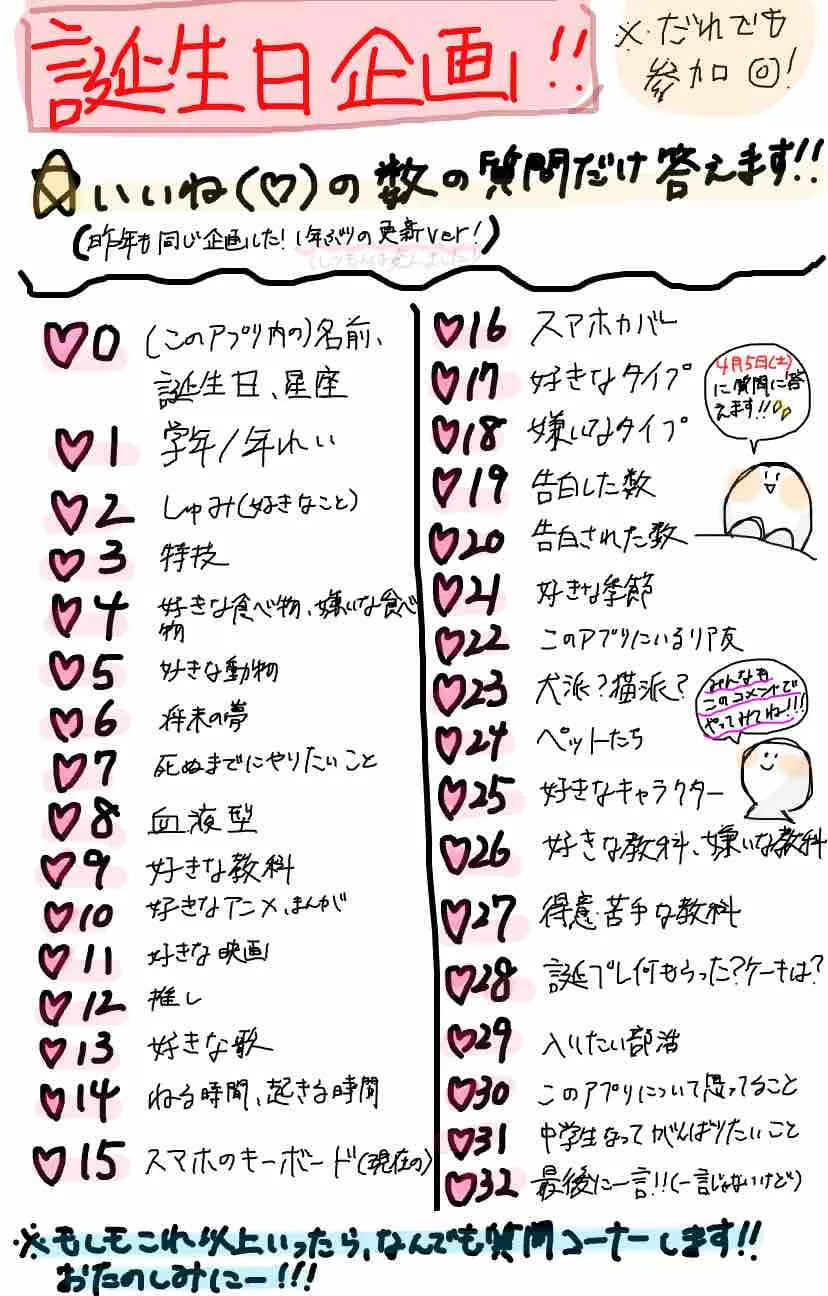 誕生日企画!!
※.だれでも
参加◎!
いいね(♡)の数の質問だけ答えます!!
(昨年も同じ企画した!1年ぶりの更新ver!)
♡0 (このアプリ内の)名前、
誕生日、星座
♡1 学年/年れい
♡2 しゅみ(好きなこと)
♡3 特技
♡4 好きな食べ物、嫌いな食べ
物
♡5 好きな動物
♡6 将来の夢
♡7 死ぬまでにやりたいこと
♡8 血液型
♡9 好きな教科
♡10 好きなアニメ、まんが
♡11 好きな映画
♡12 推し
♡13 好きな歌
♡14 ねる時間、起きる時間
♡15 スマホのキーボード(現在の)
♡16 スマホカバー
♡17 好きなタイプ
♡18 嫌いなタイプ
♡19 告白した数
♡20 告白された数
♡21 好きな季節
♡22 このアプリにいるリア友
♡23 犬派?猫派?
♡24 ペットたち
♡25 好きなキャラクター
♡26 好きな教科、嫌いな教科
♡27 得意・苦手な教科
♡28 誕プレ何もらった?ケーキは?
♡29 入りたい部活
♡30 このアプリについて思ってること
♡31 中学生なってがんばりたいこと
♡32 最後に一言!!(一言じゃないけど)
4月5日(土)
に質問に答
えます!!
みんなも
このコメントで
やってみてね!!!
※もしもこれ以上いったら、なんでも質問コーナーします!!
おたのしみにー!!!